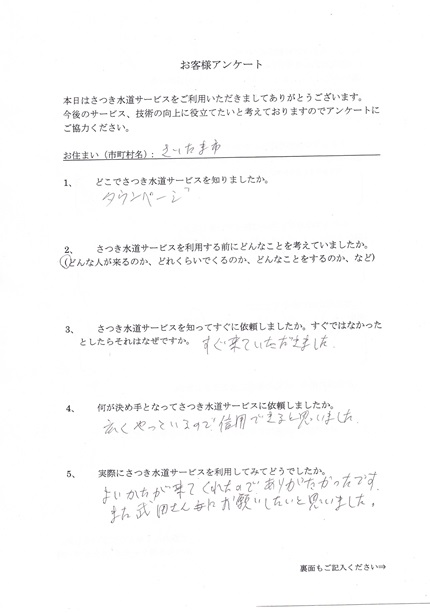 お客様アンケート
本日はさつき水道サービスをご利用いただきましてありがとうございます。
今後のサービス、技術の向上に役立てたいと考えておりますのでアンケートに
ご協力ください。
お住まい（市町村名）：さいたま市
1、 どこでさつき水道サービスを知りましたか。
タウンページ
2、 さつき水道サービスを利用する前にどんなことを考えていましたか。
（どんな人が来るのか、どれくらいでくるのか、どんなことをするのか、など）
3、 さつき水道サービスを知ってすぐに依頼しましたか。すぐではなかった
としたらそれはなぜですか。 すぐ来ていただきました.
4、 何が決め手となってさつき水道サービスに依頼しましたか。
広くやっているので信用できると思いました
5、 実際にさつき水道サービスを利用してみてどうでしたか。
よいかたが来てくれたのでありがたかったです.
また武田さんにお願いしたいと思いました。
裏面もご記入ください⇒